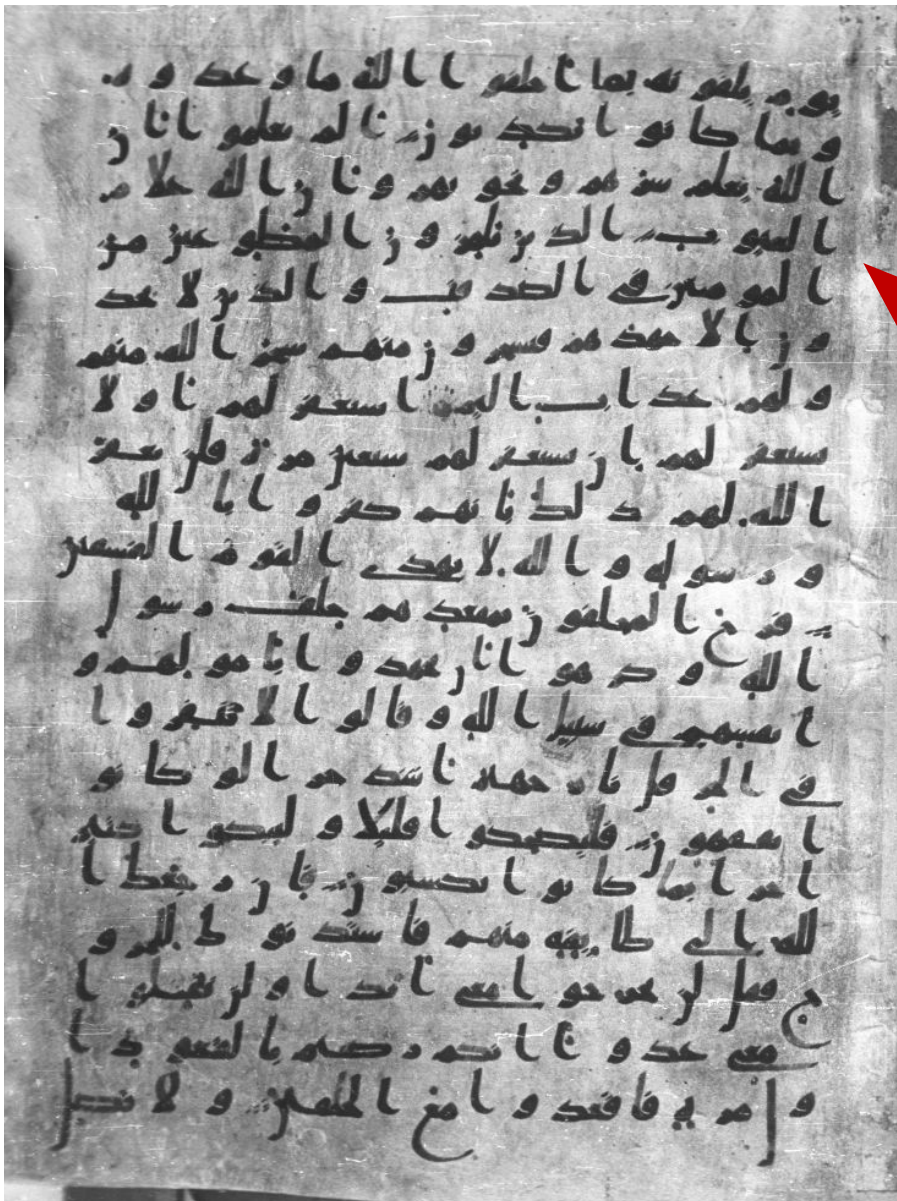 يوم يلقونه بما اخلفوا الله ما وعدوه
وبما كانوا يكذبون الم يعلموا ان
الله يعلم سرهم ونجويهم وان الله علام
الغيوب الذين يلمزون المطوعين من
المومنين في الصدقت والذين لا يجد
ون الا جهدهم فيسخرون منهم سخر الله منهم
ولهم عذاب اليم استغفر لهم او لا
تستغفر لهم ان تستغفر لهم سبعين مرة فلن يغفر
الله لهم ذلك بانهم كفروا بالله
ورسوله والله لا يهدي القوم الفسقين
فرح المخلفون بمقعدهم خلف رسول
الله وكرهوا ان يجهدوا باموالهم و
انفسهم في سبيل الله وقالوا لا تنفروا
في الحر قل نار جهنم اشد حرا لو كانوا
يفقهون فليضحكوا قليلا وليبكوا كثير
ا جزا بما كانوا يكسبون فان رجعك ا
لله الى طايفة منهم فاستذنوك للخرو
ج فقل لن تخرجوا معي ابدا ولن تقتلوا
معي عدوا انكم رضيتم بالقعود ا
ول مرة فاقعدوا مع الخلفين ولا تصل